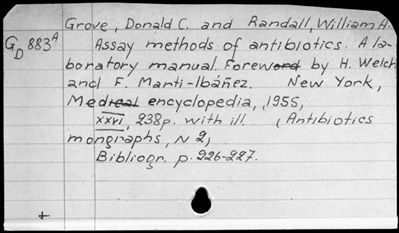 Grove, Donald C. and Randall, William A.
G_D 883^A
Assay methods of antibiotics. A la-
boratory manual. Foreword by H. Welch
and F. Marti-Ibáñez. New York,
Medical encyclopedia, 1955,
xxvi, 238p. with ill. (Antibiotics
mongraphs, N 2)
Bibliogr. p. 226-227.
+